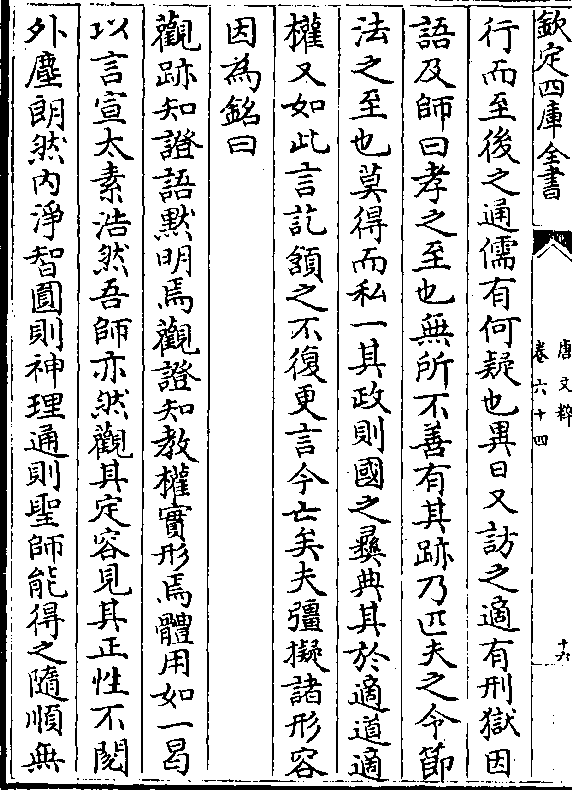 欽定四庫全書
唐文粹
卷六十四
十六
行而至後之通儒有何疑也異日又訪之適有刑獄因
語及師曰孝之至也無所不善有其跡乃匹夫之令節
法之至也莫得而私一其政則國之彝典其於適道適
權又如此言訖頷之不復更言今亡矣夫彊擬諸形容
因為銘曰
觀跡知證語默明焉觀證知教權實形焉體用如一曷
以言宣太素浩然吾師亦然觀其定容見其正性不閡
外塵朗然內淨智圓則神理通則聖師能得之隨順無